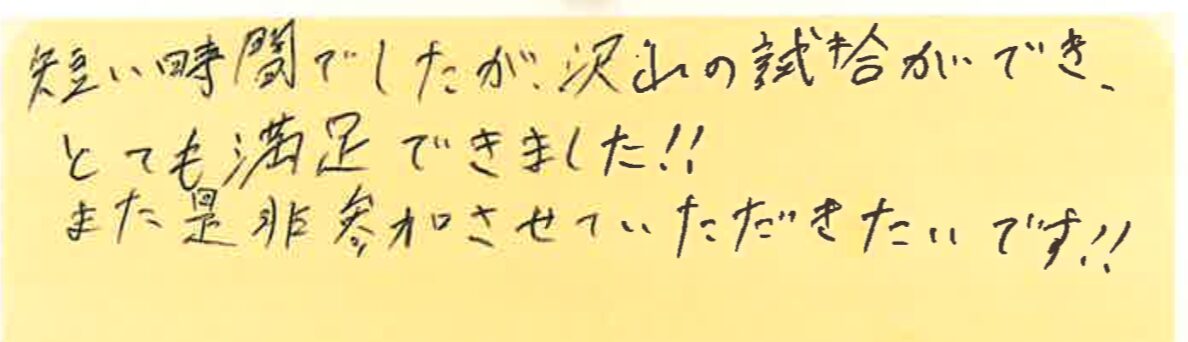 短い時間でしたが、沢山の試合ができ、
とても満足できました!!
また是非参加させていただきたいです!!